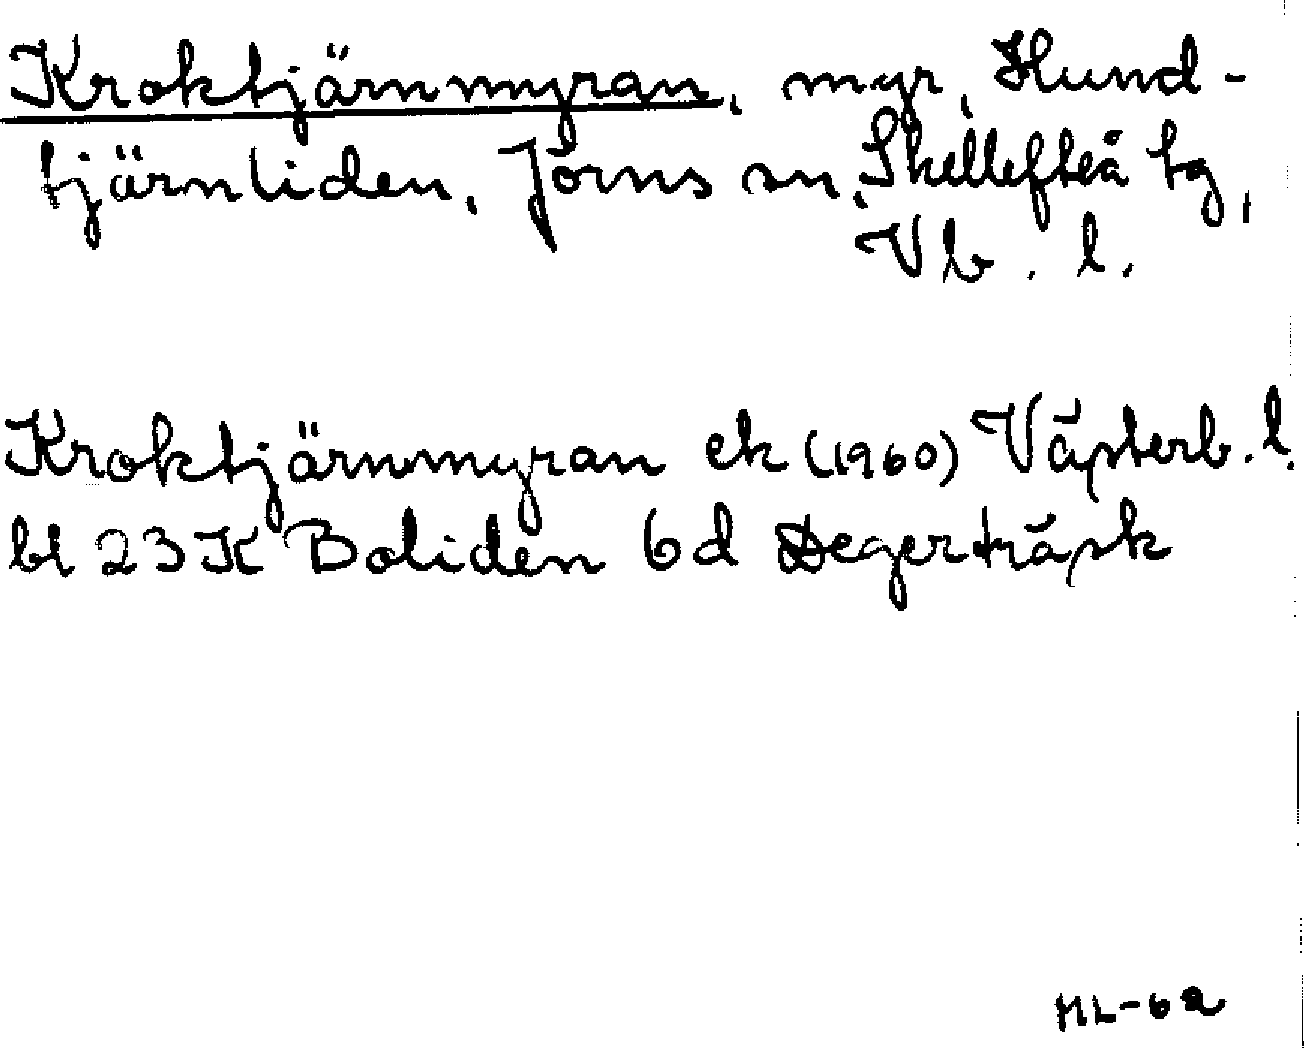 Kroktjärnmyran, myr, Hund-
tjärnliden, Jörns sn, Skellefteå tg,
Vb. l.
Kroktjärnmyran ek (1960) Västerb. l.
bl 23 K Boliden 6d Degerträsk
HL-62